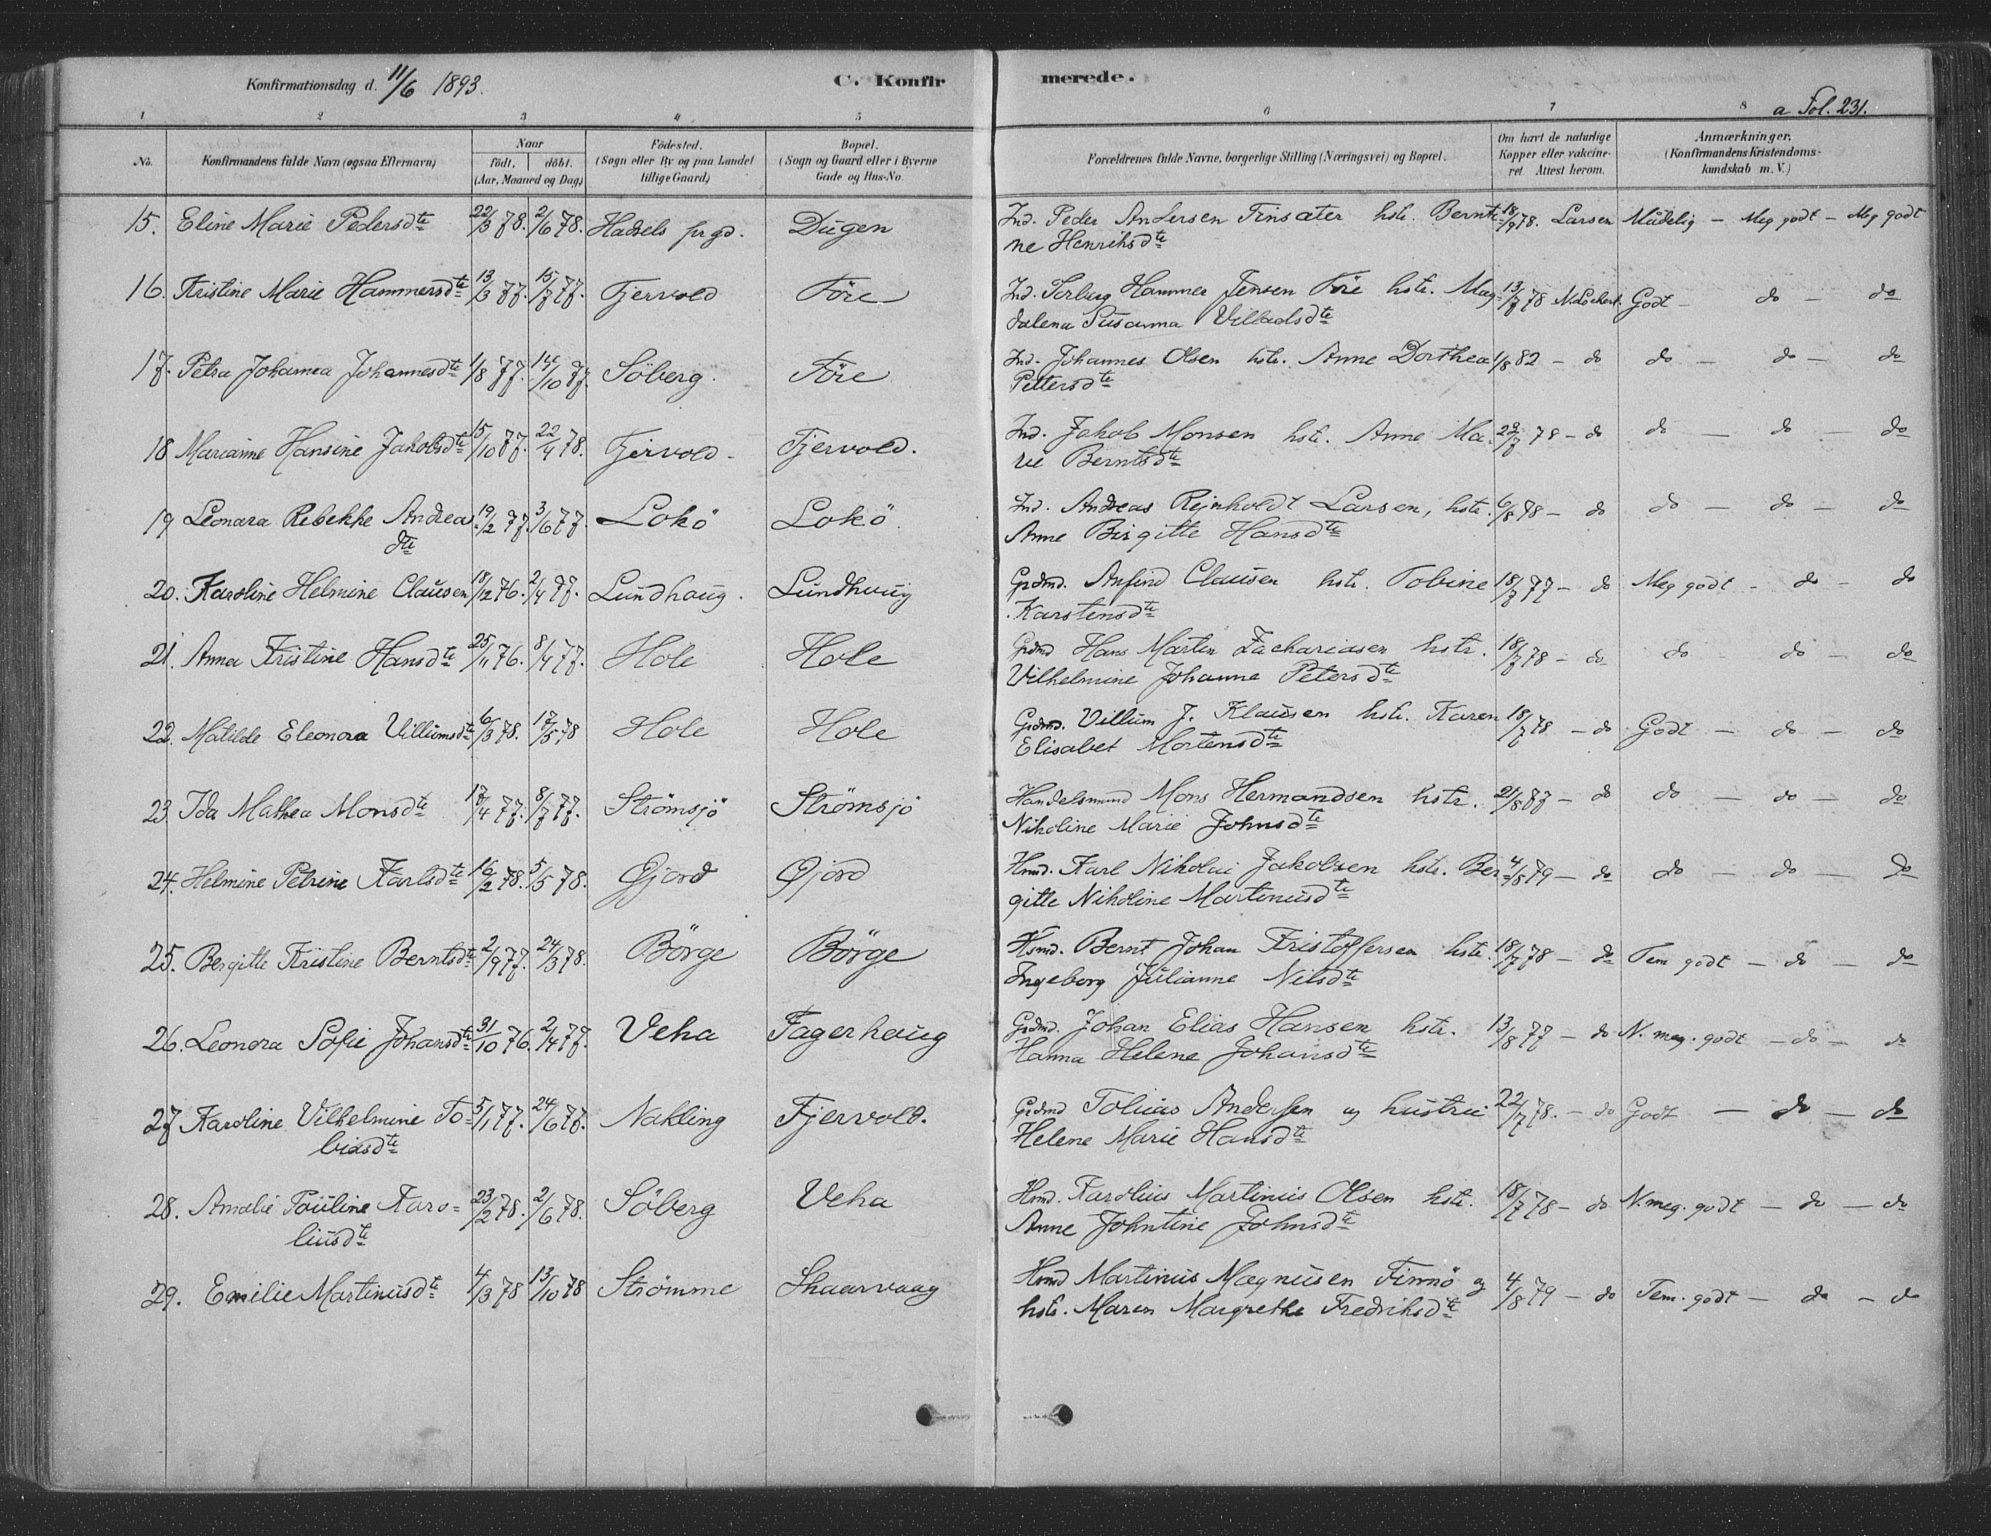 Konfirmationsdag d. 11/6 1893. C. Konfirmerede. a Fol. 231.
1 2 3 4 5 6 7 8
No. Konfirmandens fulde Navn (ogsaa Efternavn) Naar födt. döbt. (Aar, Maaned og Dag) Födested. (Sogn eller By og paa Landet tillige Gaard) Bopæl. (Sogn og Gaard eller i Byerne Gade og Hus-No. Forældrenes fulde Navne, borgerlige Stilling (Næringsvei) og Bopæl. Om havt de naturlige Kopper eller vakcineret. Attest herom. Anmærkninger. (Konfirmandens Kristendomskundskab m. V.)
15. Eline Marie Pedersdte 22/3 78. 2/6 78. Hadsels prgd. Dugen Ind. Peder Andersen Finsæter hstr. Bernti- 18/9 78. Larsen Mådelig - Meg godt - Meg godt
ne Henriksdte
16. Kristine Marie Hammersdte 13/3 77. 15/7 77. Fjervold Före Ind. Hammer Jensen Före hstr. Mag- 13/7 78 N. Lockert. Godt - do - do
dalena Susanna Villadsdte
17. Petra Johanna Johannesdte 1/8 77. 14/10 77. Söberg. Före Ind. Johannes Olsen hstr. Anne Dorthea 1/8 82 - do do - do - do
Pettersdte
18 Marianne Hansine Jakobsdte 15/10 77. 22/4 78. Fjervold. Fjervold. Ind. Jakob Monsen hstr. Anne Ma- 22/7 78 - do do - do - do
rie Berntsdte
19 Leonara Rebekke Andreas 19/2 77. 3/6 77. Lokö Lokö. Ind. Andreas Rejnholdt Larsen, hstr. 6/8 78 - do do - do - do
dte Anne Birgitte Hansdte
20. Karoline Helmine Clausen 18/12 76. 2/4 77. Lundhaug. Lundhaug Grdmd. Anfind Clausen hstr. Tobine 18/7 77 - do Meg godt - do - do
Karstensdte
21. Anna Kristine Hansdte 25/11 76. 8/4 77. Hole Hole Grdmd Hans Martin Zachariasen hstr. 18/7 78 - do do - do - do
Vilhelmine Johanne Petersdte
22. Matilde Eleonora Villumsdte 6/3 78. 17/5 78 Hole Hole Grdmd. Villum J. Klausen hstr. Karen 18/7 78 - do Godt - do - do
Elisabet Mortensdte
23. Ida Mathea Monsdte 17/4 77. 8/7 77. Strömsjö Strömsjö Handelsmand Mons Hermandsen hstr. 21/8 87 - do do - do - do
Nikoline Marie Johnsdte
24. Helmine Petrine Karlsdte 16/2 78. 5/5 78. Gjord Gjord Hmd. Karl Nikolai Jakobsen hstr. Ber- 4/8 79 - do do - do - do
gitte Nikoline Martinusdte
25. Bergitte Kristine Berntsdte 2/9 77. 24/3 78. Börge Börge Hsmd. Bernt Johan Kristoffersen hstr. 18/7 78 - do Tem godt - do - do
Ingeborg Julianne Nilsdte
26. Leonora Sofie Johansdte 31/10 76. 2/4 77. Veha Fagerhaug Grdmd. Johan Elias Hansen hstr. 13/8 77 - do N. meg. godt - do - do
Hanna Helene Johansdte
27 Karoline Vilhelmine To- 5/1 77. 24/6 77. Nakling Fjervold. Grdmd Tobias Andersen og hustrue 22/7 78. - do Godt - do - do
biasdte Helene Marie Hansdte
28. Amalie Pauline Karo- 23/2 78. 2/6 78. Söberg Veha Hmd. Karolius Martinus Olsen hstr. 18/7 78 - do N. meg. godt - do - do
liusdte Anne Johntine Johnsdte
29. Emilie Martinusdte 4/3 78 13/10 78 Strömme Skaarvaag Hmd Martinus Magnusen Finnö og 4/8 79 - do Tem. godt - do - do
hstr. Maren Margrethe Fredriksdte